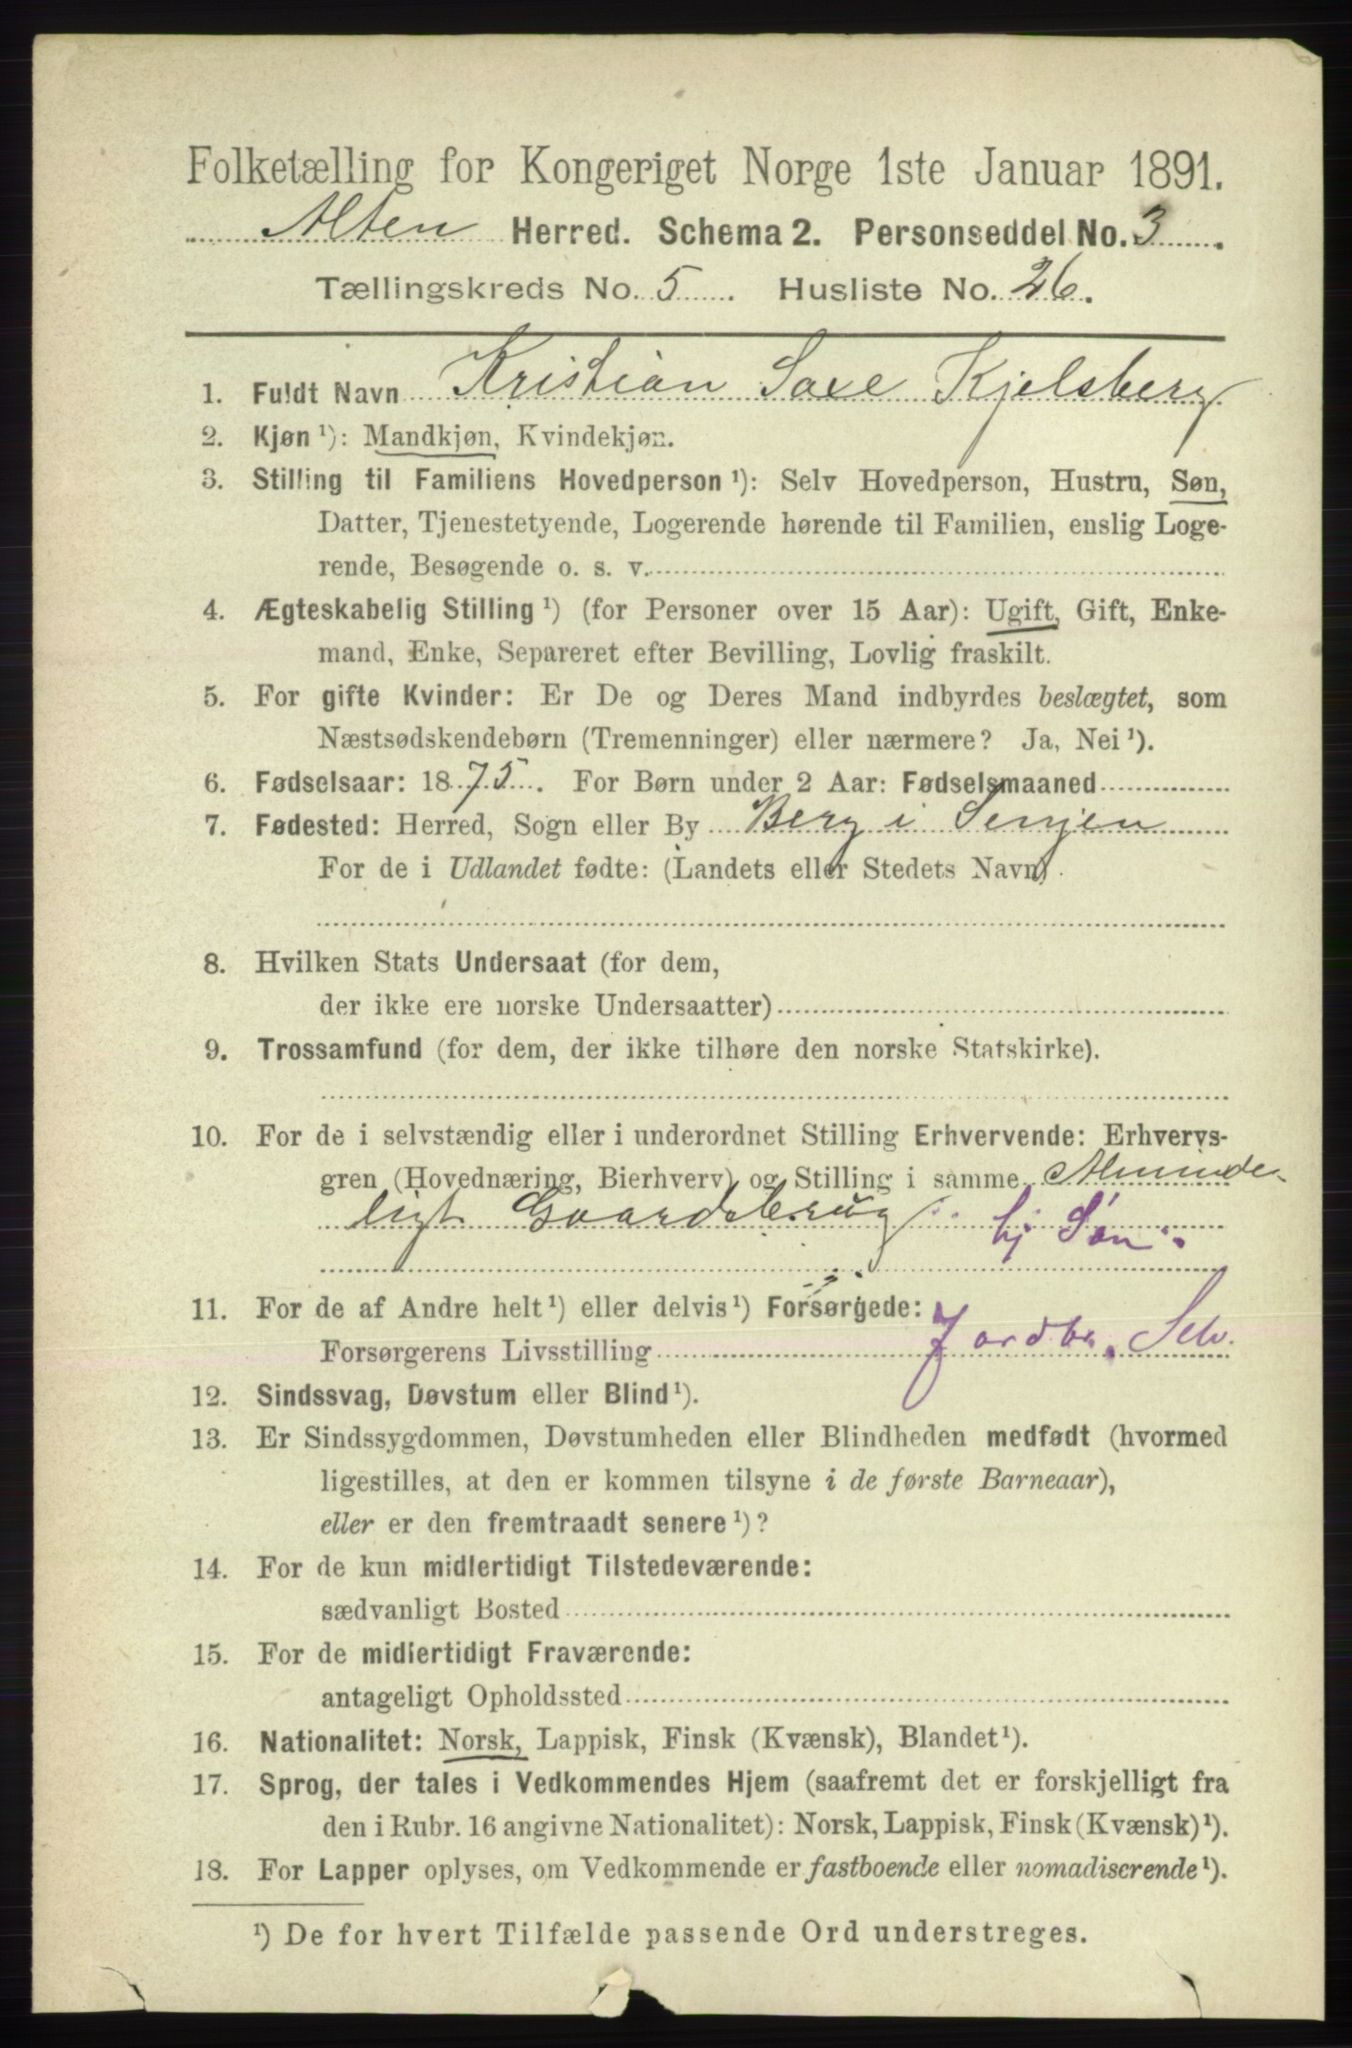 Folketælling for Kongeriget Norge 1ste Januar 1891.
Alten Herred. Schema 2. Personseddel No. 3.
Tællingskreds No. 5. Husliste No. 26.
1. Fuldt Navn Kristian Saxe Kjelsberg
2. Kjøn ¹): Mandkjøn, Kvindekjøn.
3. Stilling til Familiens Hovedperson ¹): Selv Hovedperson, Hustru, Søn,
Datter, Tjenestetyende, Logerende hørende til Familien, enslig Loge-
rende, Besøgende o. s. v.
4. Ægteskabelig Stilling ¹) (for Personer over 15 Aar): Ugift, Gift, Enke-
mand, Enke, Separeret efter Bevilling, Lovlig fraskilt.
5. For gifte Kvinder: Er De og Deres Mand indbyrdes beslægtet, som
Næstsødskendebørn (Tremenninger) eller nærmere? Ja, Nei ¹).
6. Fødselsaar: 1875. For Børn under 2 Aar: Fødselsmaaned
7. Fødested: Herred, Sogn eller By Berg i Senjen
For de i Udlandet fødte: (Landets eller Stedets Navn)
8. Hvilken Stats Undersaat (for dem,
der ikke ere norske Undersaatter)
9. Trossamfund (for dem, der ikke tilhøre den norske Statskirke).
10. For de i selvstændig eller i underordnet Stilling Erhvervende: Erhvervs-
gren (Hovednæring, Bierhverv) og Stilling i samme Alminde-
ligt Gaardsbrug hj Søn
11. For de af Andre helt ¹) eller delvis ¹) Forsørgede:
Forsørgerens Livsstilling Jordbr. Selv.
12. Sindssvag, Døvstum eller Blind ¹).
13. Er Sindssygdommen, Døvstumheden eller Blindheden medfødt (hvormed
ligestilles, at den er kommen tilsyne i de første Barneaar),
eller er den fremtraadt senere ¹)?
14. For de kun midlertidigt Tilstedeværende:
sædvanligt Bosted
15. For de midlertidigt Fraværende:
antageligt Opholdssted
16. Nationalitet: Norsk, Lappisk, Finsk (Kvænsk), Blandet ¹).
17. Sprog, der tales i Vedkommendes Hjem (saafremt det er forskjelligt fra
den i Rubr. 16 angivne Nationalitet): Norsk, Lappisk, Finsk (Kvænsk) ¹).
18. For Lapper oplyses, om Vedkommende er fastboende eller nomadiserende ¹).
¹) De for hvert Tilfælde passende Ord understreges.